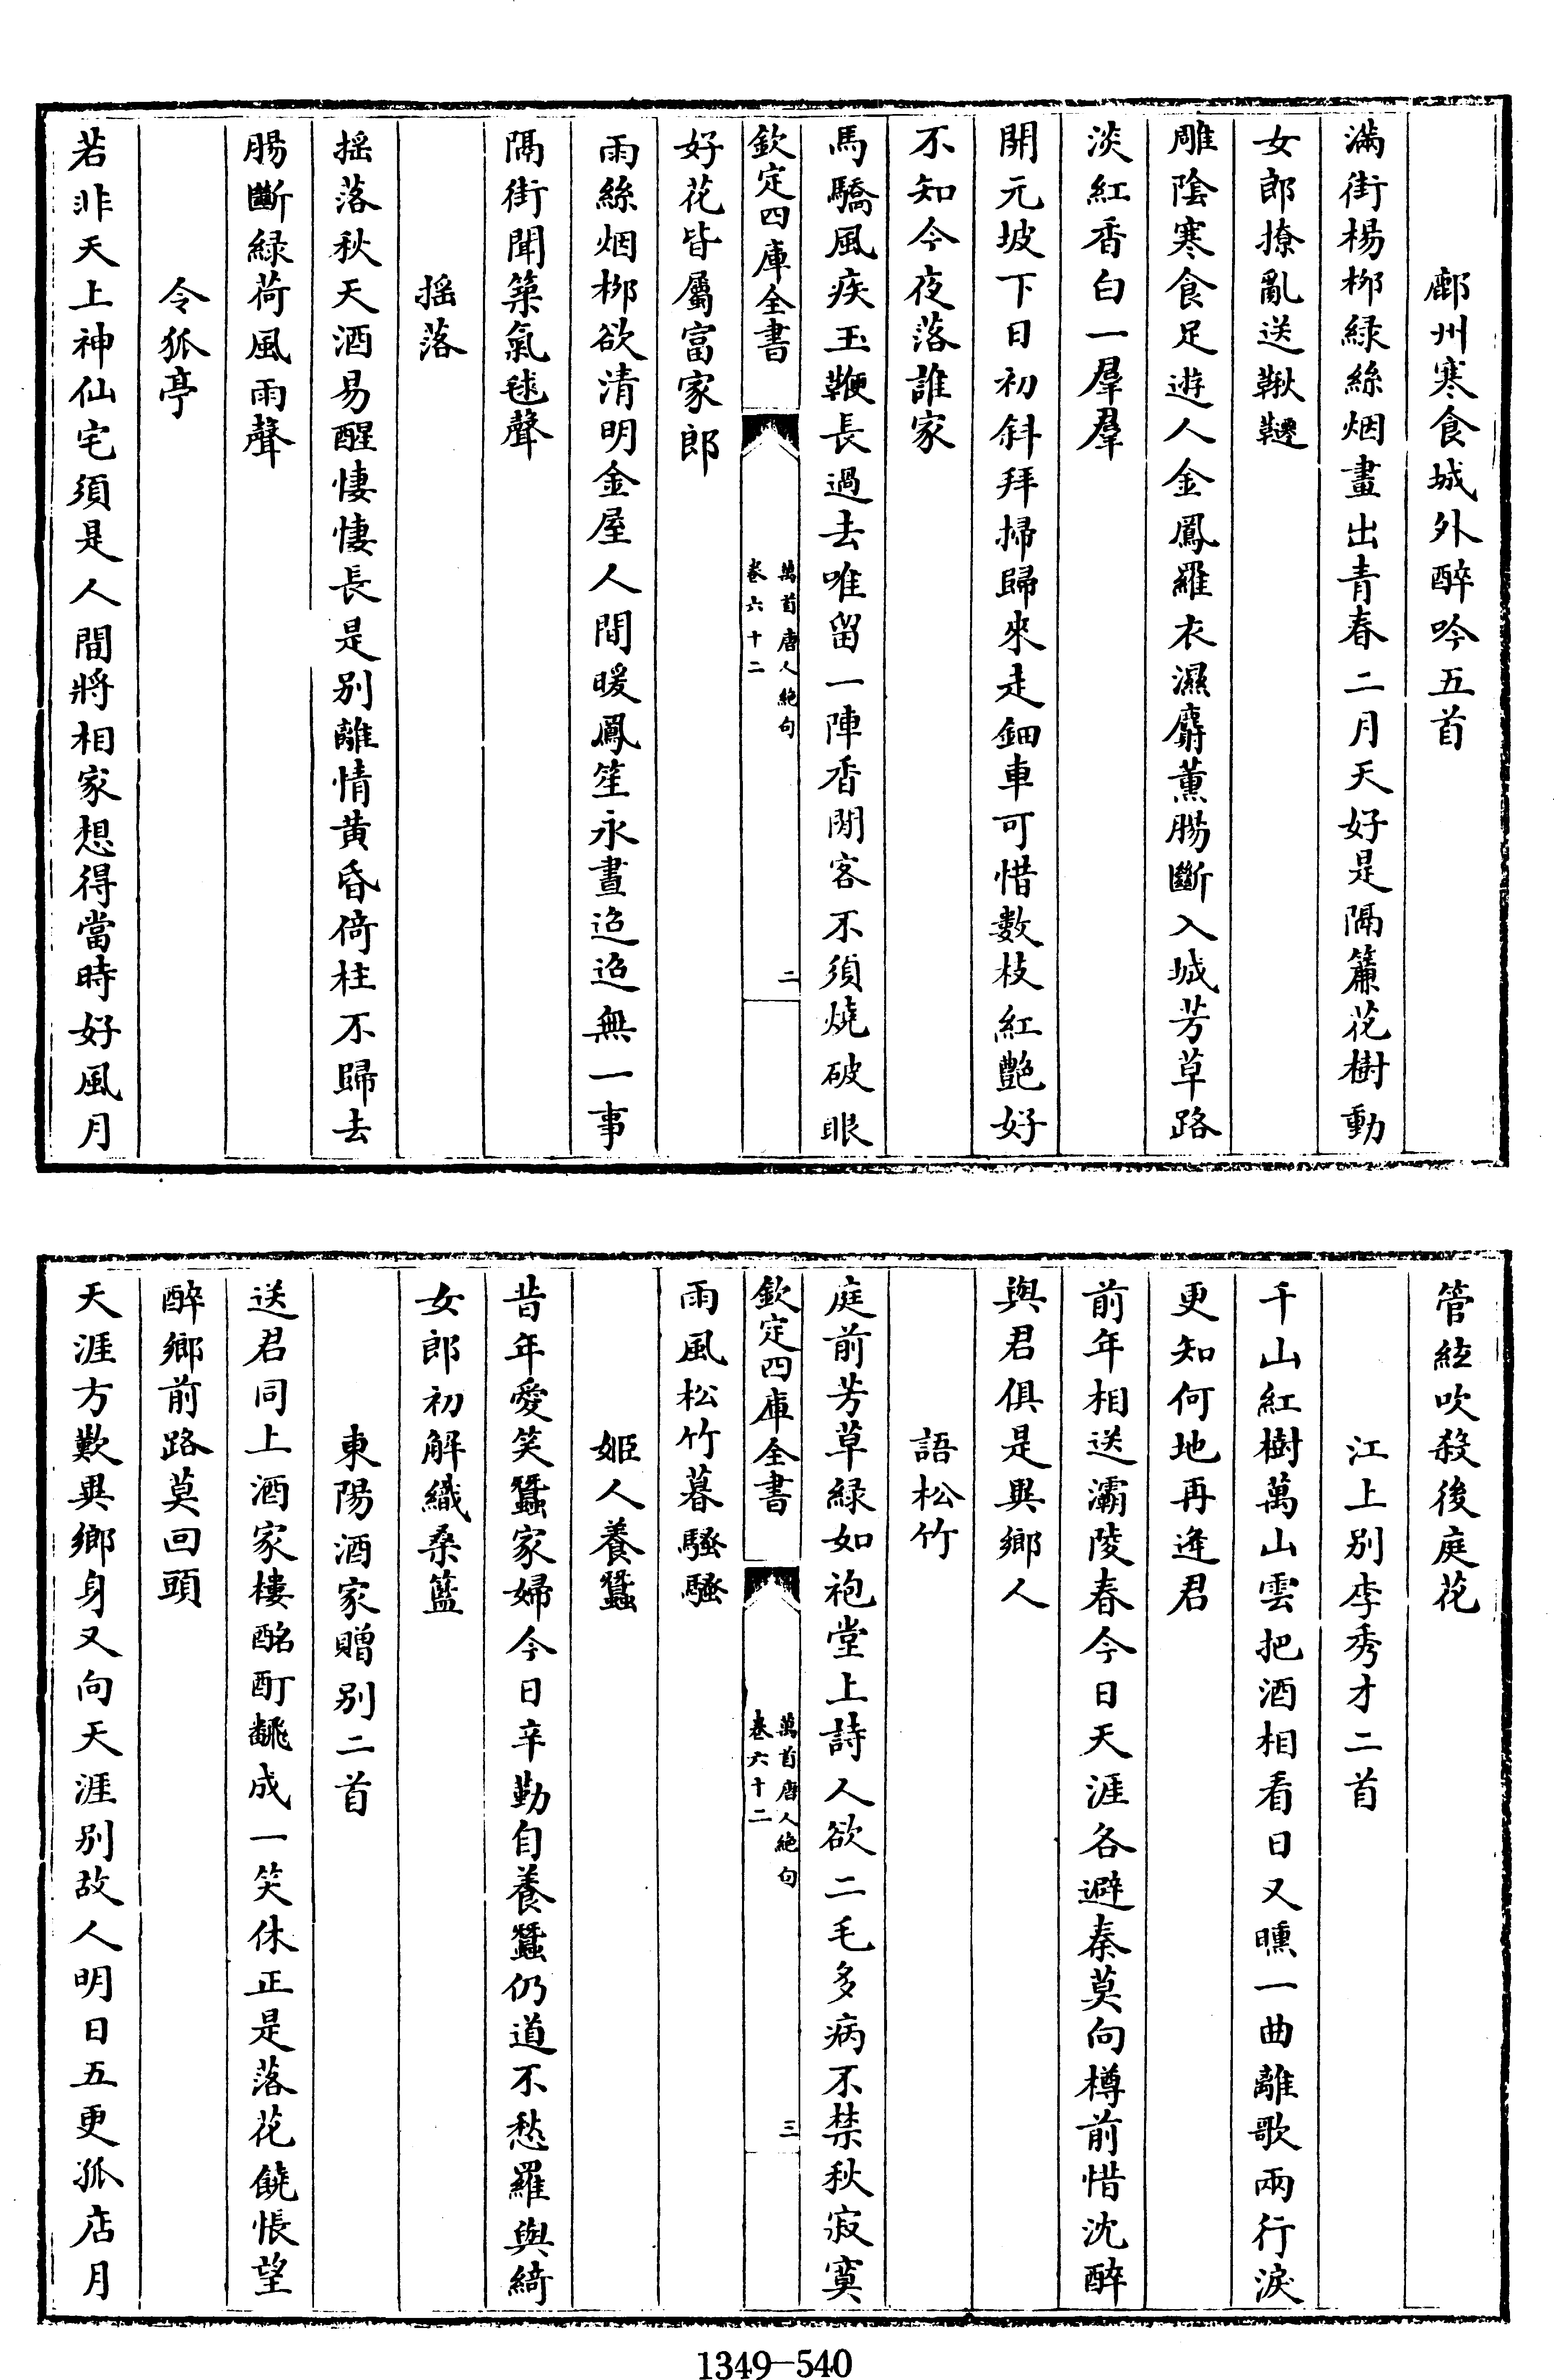 鄜州寒食城外醉吟五首
滿街楊栁緑絲烟畫出青春二月天好是隔簾花樹動
女郎撩亂送鞦韆
雕陰寒食足遊人金鳳羅衣濕麝薰腸斷入城芳草路
淡紅香白一羣羣
開元坡下日初斜拜掃歸來走鈿車可惜數枝紅艶好
不知今夜落誰家
馬驕風疾玉鞭長過去唯留一陣香閒客不須燒破眼
欽定四庫全書
萬首唐人絶句
卷六十二
二
好花皆屬富家郎
雨絲烟栁欲清明金屋人間暖鳳笙永晝迢迢無一事
隔街聞築氣毬聲
揺落
揺落秋天酒易醒悽悽長是别離情黄昏倚柱不歸去
腸斷緑荷風雨聲
令狐亭
若非天上神仙宅須是人間將相家想得當時好風月
管絃吹殺後庭花
江上别李秀才二首
千山紅樹萬山雲把酒相看日又曛一曲離歌兩行淚
更知何地再逢君
前年相送灞陵春今日天涯各避秦莫向樽前惜沈醉
與君俱是異鄉人
語松竹
庭前芳草緑如袍堂上詩人欲二毛多病不禁秋寂寞
欽定四庫全書
萬首唐人絶句
卷六十二
三
雨風松竹暮騷騷
姬人養蠶
昔年愛笑蠶家婦今日辛勤自養蠶仍道不愁羅與綺
女郎初解織桑籃
東陽酒家贈别二首
送君同上酒家樓酩酊翻成一笑休正是落花饒悵望
醉鄉前路莫回頭
天涯方歎異鄉身又向天涯别故人明日五更孤店月
1349-540